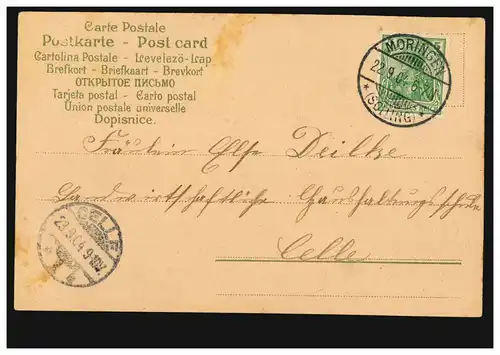 Carte Postale
Postkarte - Post card
Cartolina Postale - Levelező-Lap
Brefkort - Briefkaart - Brevkort
ОТКРЫТОЕ ПИСЬМО
Tarjeta postal - Carto postal
Union postale universelle
Dopisnice.
MORINGEN
22.9.04
*(SOLLING)*
Fräulein Else Deilke
Landwirtschaftliche Haushaltungsschule
Celle
CELLE
23.9.04.9